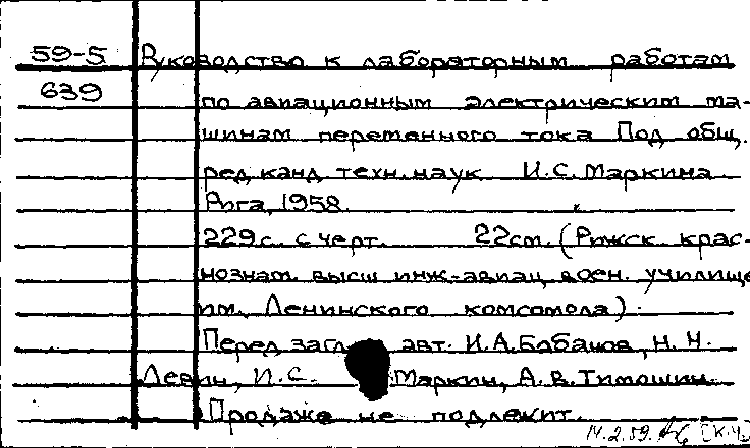 59-5 Руководство к лабораторным работам
639 по авиационным электрическим ма-
шинам переменного тока Под общ.
ред. канд. техн. наук И.С. Маркина
Рига, 1958.
229с. с черт. 22см. (Рижск. крас-
нознам. высш инж-авиац. воен. училище
им. Ленинского комсомола).
Перед загл. авт. И.А. Бабанов, Н.Н.
Левин, И.С. Маркин, А.В. Тимошин.
Продаже не подлежит.
14.2.59.